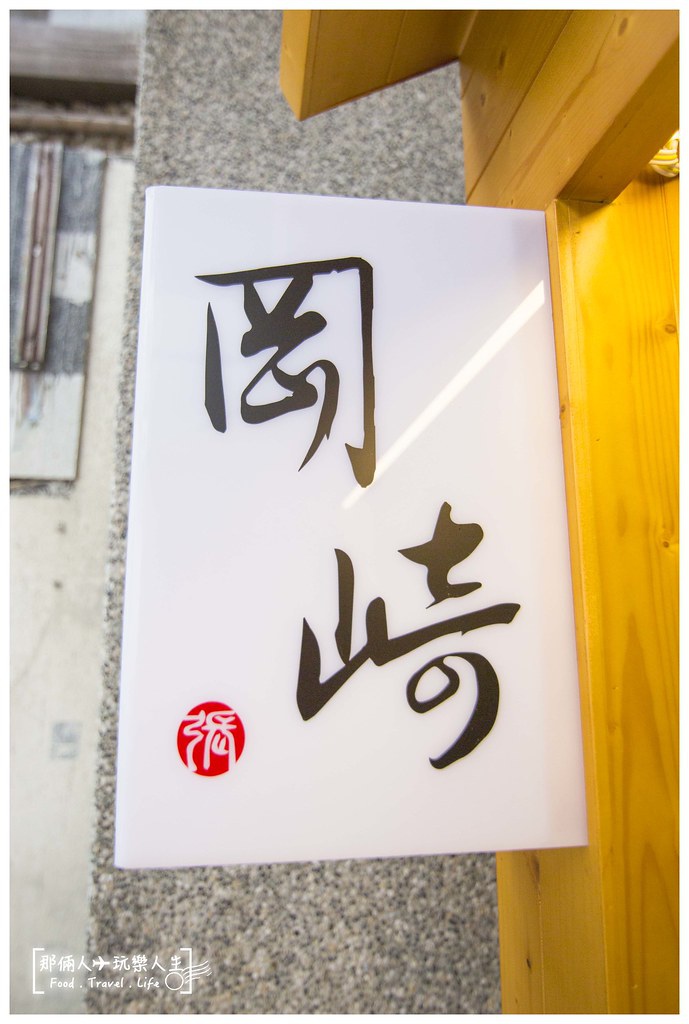 岡
崎
張
那倆人✈玩樂人生
Food . Travel . Life